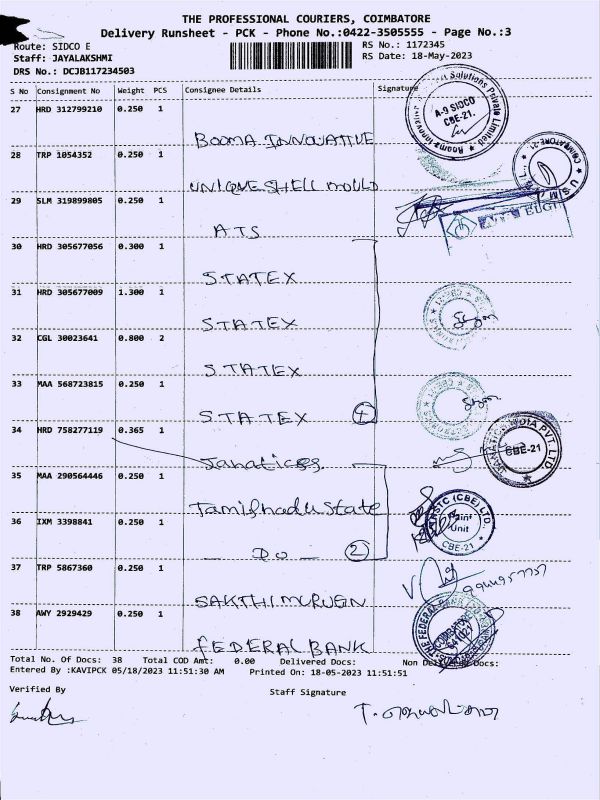 THE PROFESSIONAL COURIERS, COIMBATORE
Delivery Runsheet - PCK - Phone No.:0422-3505555 - Page No.:3
Route: SIDCO E
RS No.: 1172345
Staff: JAYALAKSHMI
RS Date: 18-May-2023
DRS No.: DCJB117234503
S No Consignment No Weight PCS Consignee Details Signature
27 HRD 312799210 0.250 1
BOOMA INNOVATIVE
A-9 SIDCO
CBE-21.
28 TRP 1054352 0.250 1
UNIQUE SHELL MOULD
29 SLM 319899805 0.250 1
ATS
30 HRD 305677056 0.300 1
STATEX
31 HRD 305677009 1.300 1
STATEX
32 CGL 30023641 0.800 2
STATEX
33 MAA 568723815 0.250 1
STATEX 4
34 HRD 758277119 0.365 1
Janatics
CBE-21
35 MAA 290564446 0.250 1
Tamilnadu State
36 IXM 3398841 0.250 1
Do 2
Unit
CBE-21
37 TRP 5867360 0.250 1
SAKTHI MURUGN
38 AWY 2929429 0.250 1
FEDERAL BANK
Total No. Of Docs: 38 Total COD Amt: 0.00 Delivered Docs: Non Delivered Docs:
Entered By :KAVIPCK 05/18/2023 11:51:30 AM Printed On: 18-05-2023 11:51:51
Verified By
Staff Signature